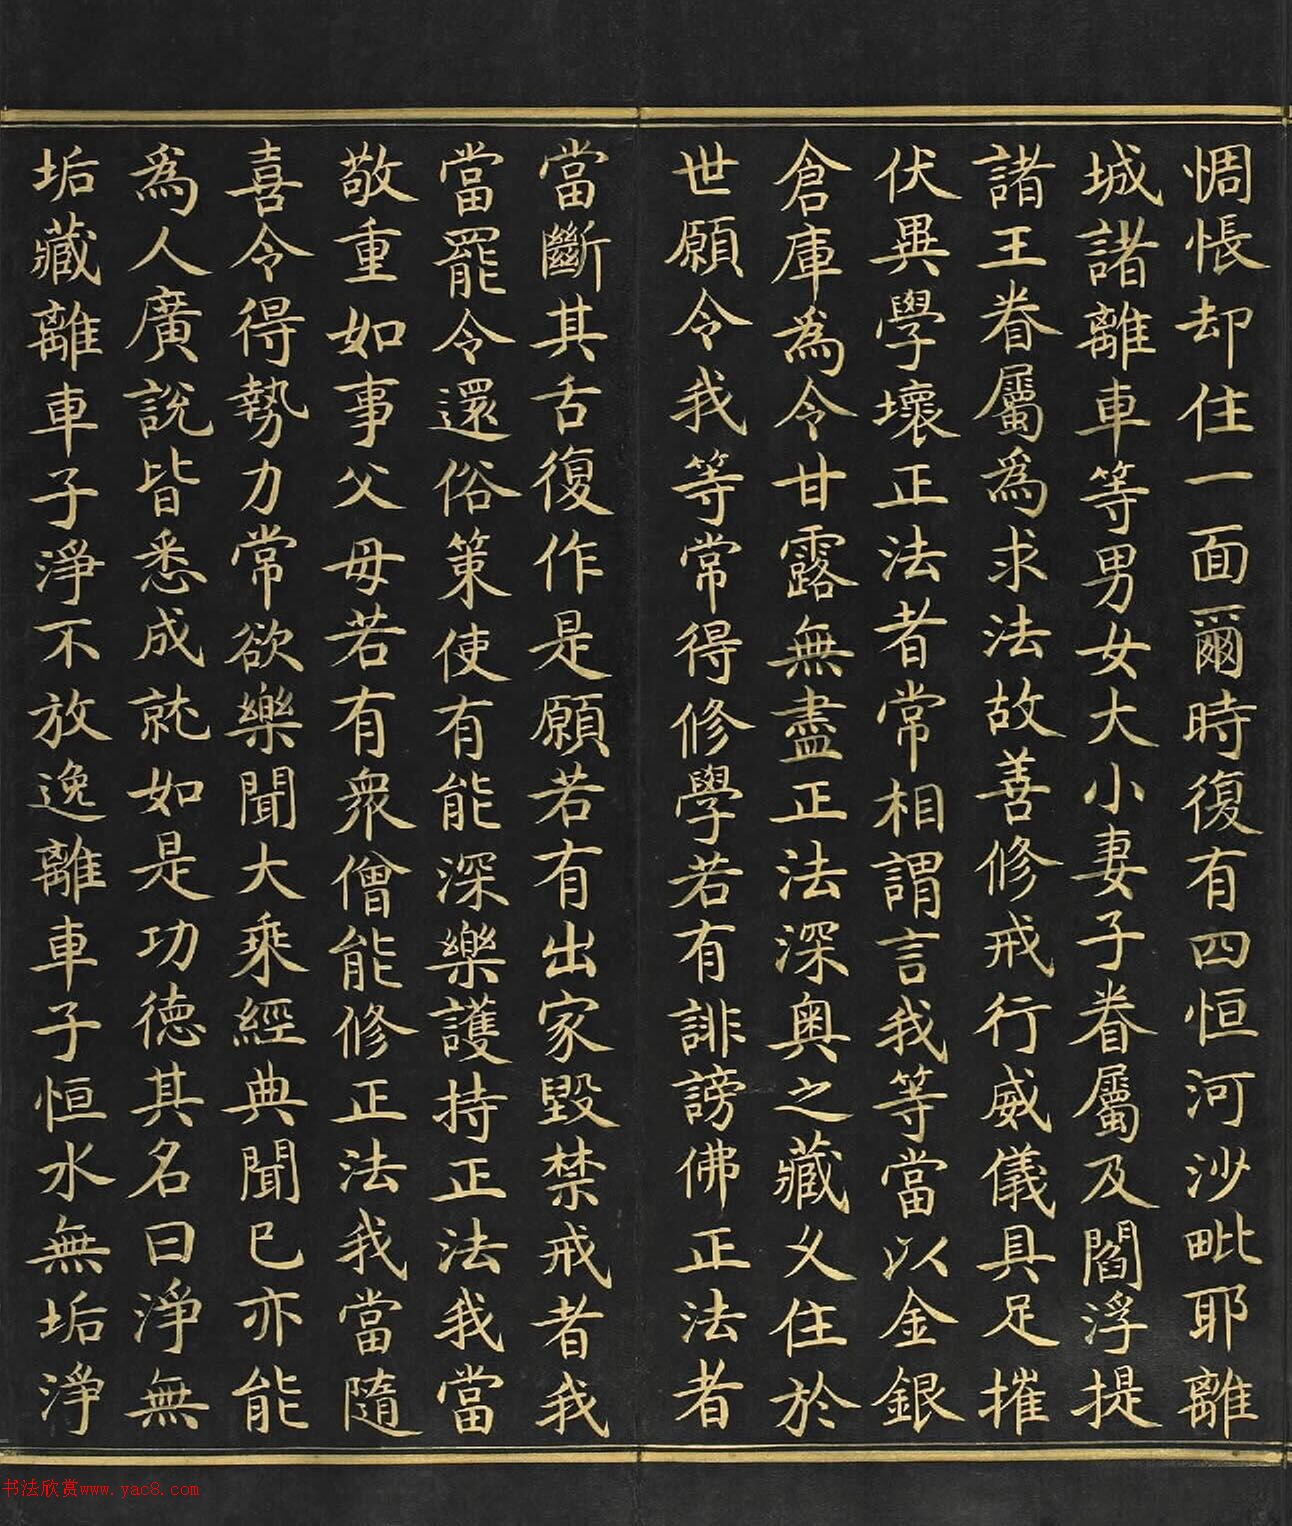 惆悵却住一面爾時復有四恒河沙毗耶離
城諸離車等男女大小妻子眷屬及閻浮提
諸王眷屬為求法故善修戒行威儀具足摧
伏異學壞正法者常相謂言我等當以金銀
倉庫為令甘露無盡正法深奧之藏久住於
世願令我等常得修學若有誹謗佛正法者
當斷其舌復作是願若有出家毀禁戒者我
當罷令還俗策使有能深樂護持正法我當
敬重如事父母若有眾僧能修正法我當隨
喜令得勢力常欲樂聞大乘經典聞已亦能
為人廣說皆悉成就如是功德其名曰淨無
垢藏離車子淨不放逸離車子恒水無垢淨
书法欣赏www.yac8.com